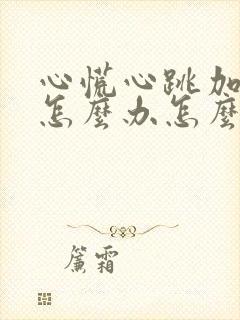 心慌心跳加
怎麼办怎麼
簾霜